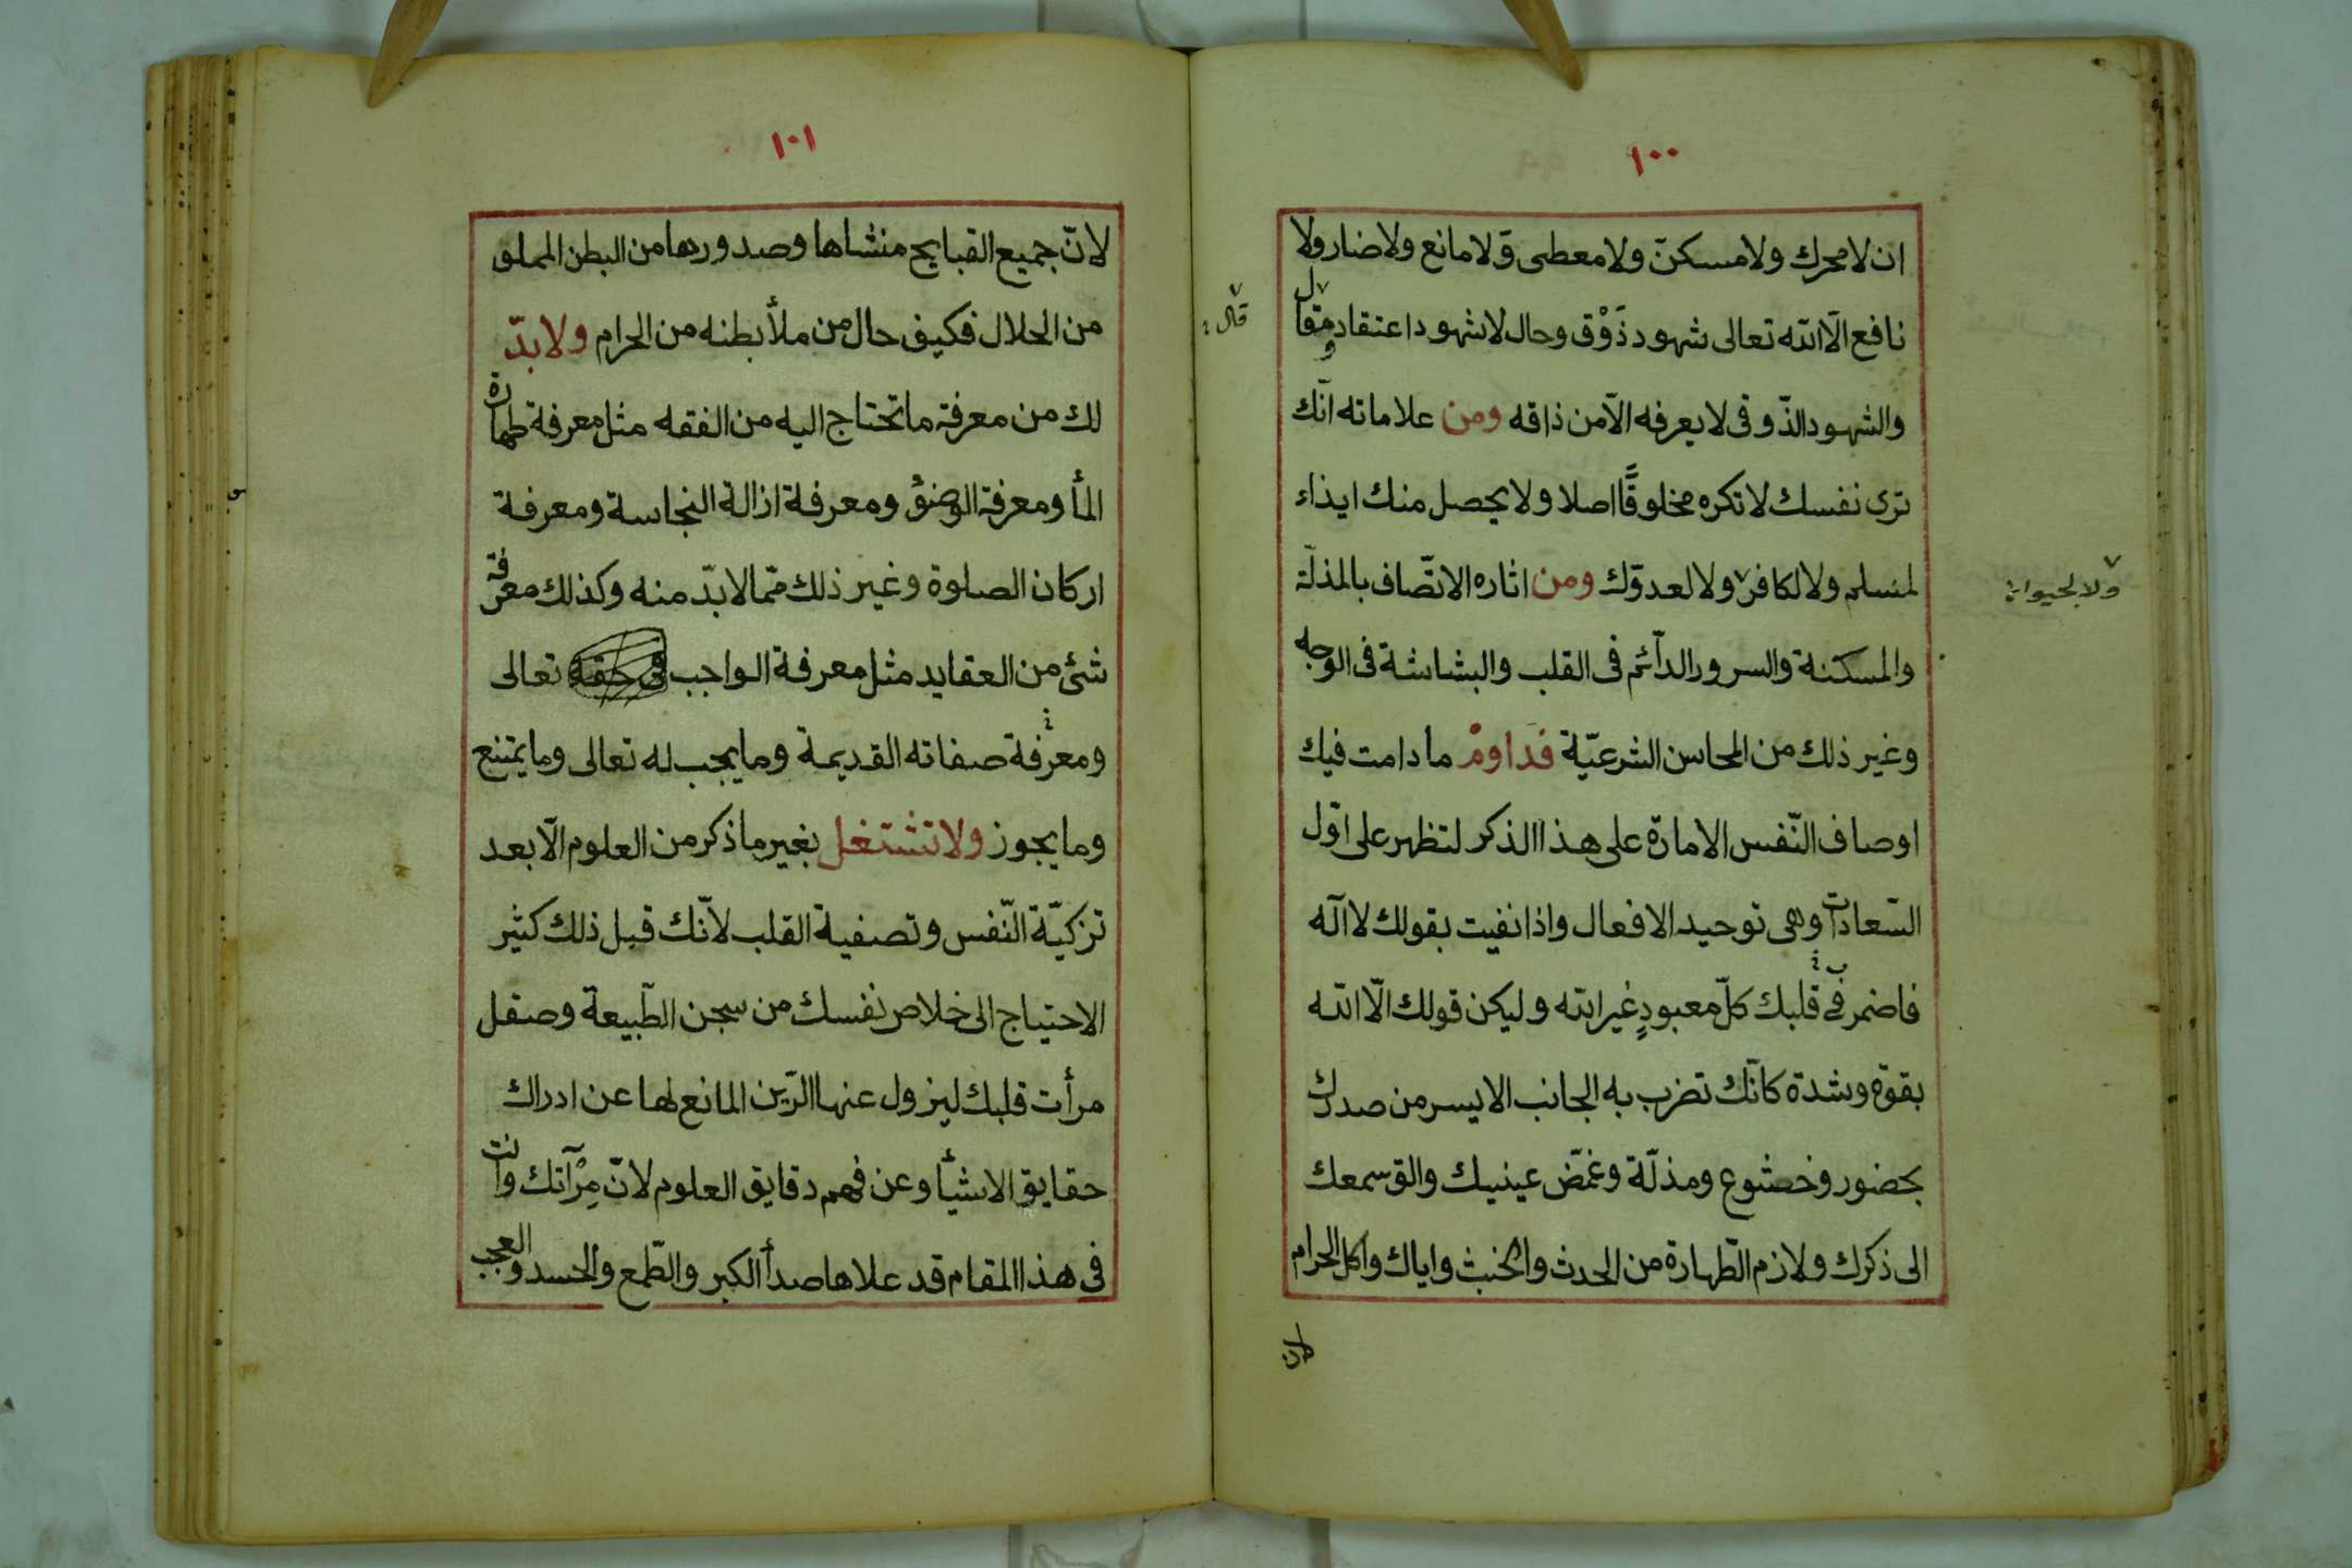 ١٠٠
ان لا محرك ولا مسكنّ ولا معطى ولا مانع ولا ضار ولا
نافع الّا الله تعالى شهود ذَوْق وحال لا شهود اعتقاد ومقال
قال
والشهود الذّوقى لا يعرفه الّا من ذاقه ومن علاماته انّك
ترى نفسك لا تكره مخلوقًا اصلا ولا يحصل منك ايذاء
لمسلم ولا لكافر ولا لعدوّك ومن اثاره الاتّصاف بالمذلّة
ولا لحيوان
والمسكنة والسرور الدآئم فى القلب والبشاشة فى الوجه
وغير ذلك من المحاسن الشرعيّة فداومْ ما دامت فيك
اوصاف النّفس الامارة على هذا الذكر لتظهر على اوّل
السّعادات وهى توحيد الافعال واذا نفيت بقولك لا اله
فاضمر فى قلبك كلّ معبودٍ غير الله وليكن قولك الّا الله
بقوّة وشدة كانّك تضرب به الجانب الايسر من صدرك
بحضور وخشوع ومذلّة وغمّض عينيك والق سمعك
الى ذكرك ولازم الطّهارة من الحدث والخبث واياك واكل الحرام
لان
١٠١
لانّ جميع القبايح منشاها وصدورها من البطن المملو
من الحلال فكيف حال من ملأ بطنه من الحرام ولا بدّ
لك من معرفة ما تحتاج اليه من الفقه مثل معرفة طهارة
المأ ومعرفة الوضوْ ومعرفة ازالة النجاسة ومعرفة
اركان الصلوة وغير ذلك ممّا لا بدّ منه وكذلك معرفة
شئ من العقايد مثل معرفة الواجب فى حقه تعالى
ومعرفة صفاته القديمة وما يجب له تعالى وما يمتنع
وما يجوز ولا تشتغل بغير ما ذكر من العلوم الّا بعد
تزكيّة النّفس وتصفية القلب لانّك قبل ذلك كثير
الاحتياج الى خلاص نفسك من سجن الطّبيعة وصقل
مرأت قلبك ليزول عنها الرّين المانع لها عن ادراك
حقايق الاشيأ وعن فهم دقايق العلوم لانّ مِرْآتك وانت
فى هذا المقام قد علاها صدأ الكبر والطّمع والحسد والعجب